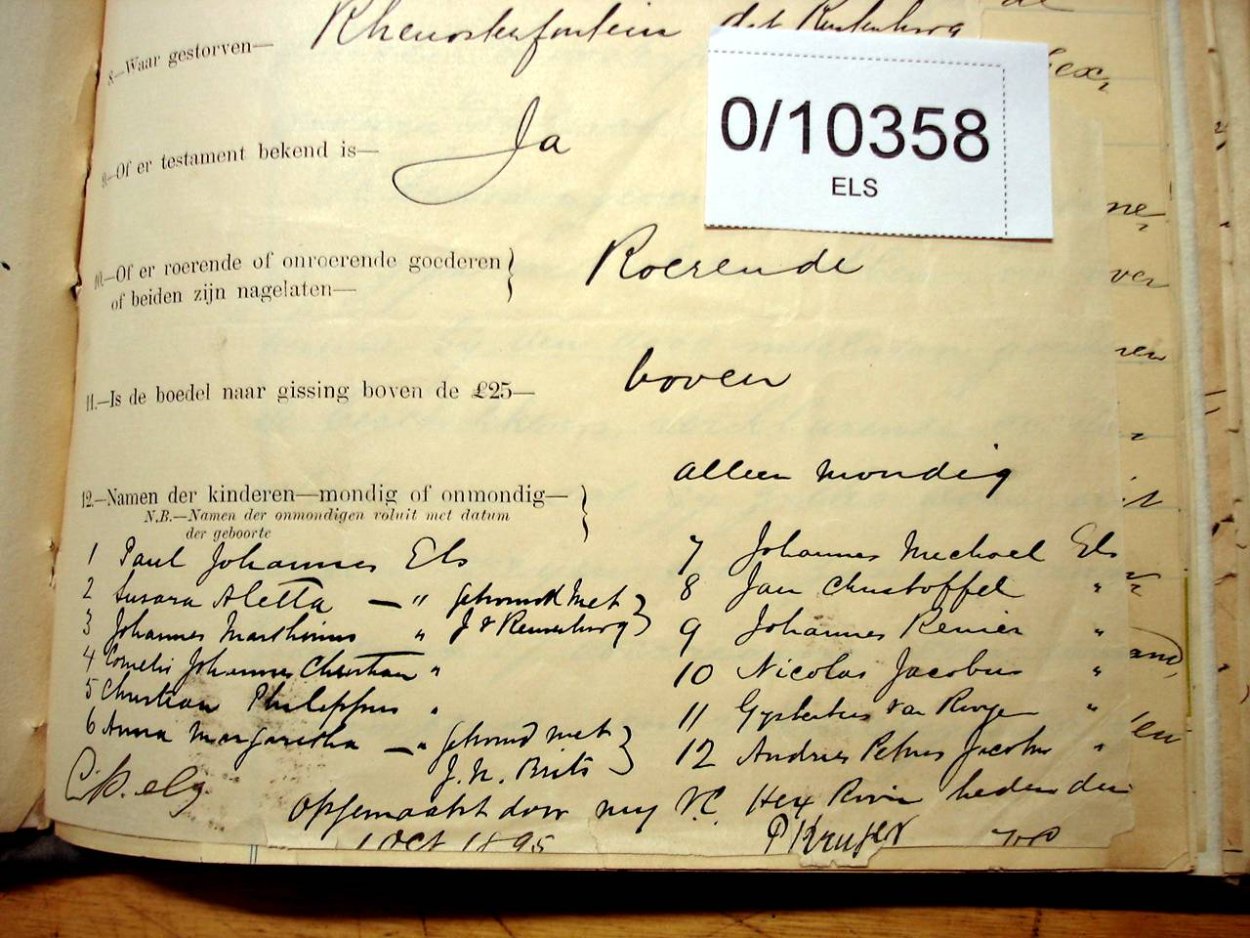 8.—Waar gestorven— Rhenosterfontein dist Rustenburg
0/10358
ELS
9.—Of er testament bekend is— Ja
10.—Of er roerende of onroerende goederen
of beiden zijn nagelaten— Roerende
11.—Is de boedel naar gissing boven de £25— boven
12.—Namen der kinderen—mondig of onmondig— allen mondig
N.B.—Namen der onmondigen voluit met datum
der geboorte
1 Paul Johannes Els
2 Susara Aletta — " getrouwd met
3 Johannes Marthinus " J Rensburg
4 Cornelis Johannes Christian "
5 Christian Philippus "
6 Anna Margaretha — " getrouwd met
J. N. Brits
7 Johannes Michael Els
8 Jan Christoffel "
9 Johannes Renier "
10 Nicolas Jacobus "
11 Gysbertus van "
12 Andries Petrus Jacobus "
Opgemaakt door my V.C. Hex Rivier heden den
1 Oct 1895 P Kruger